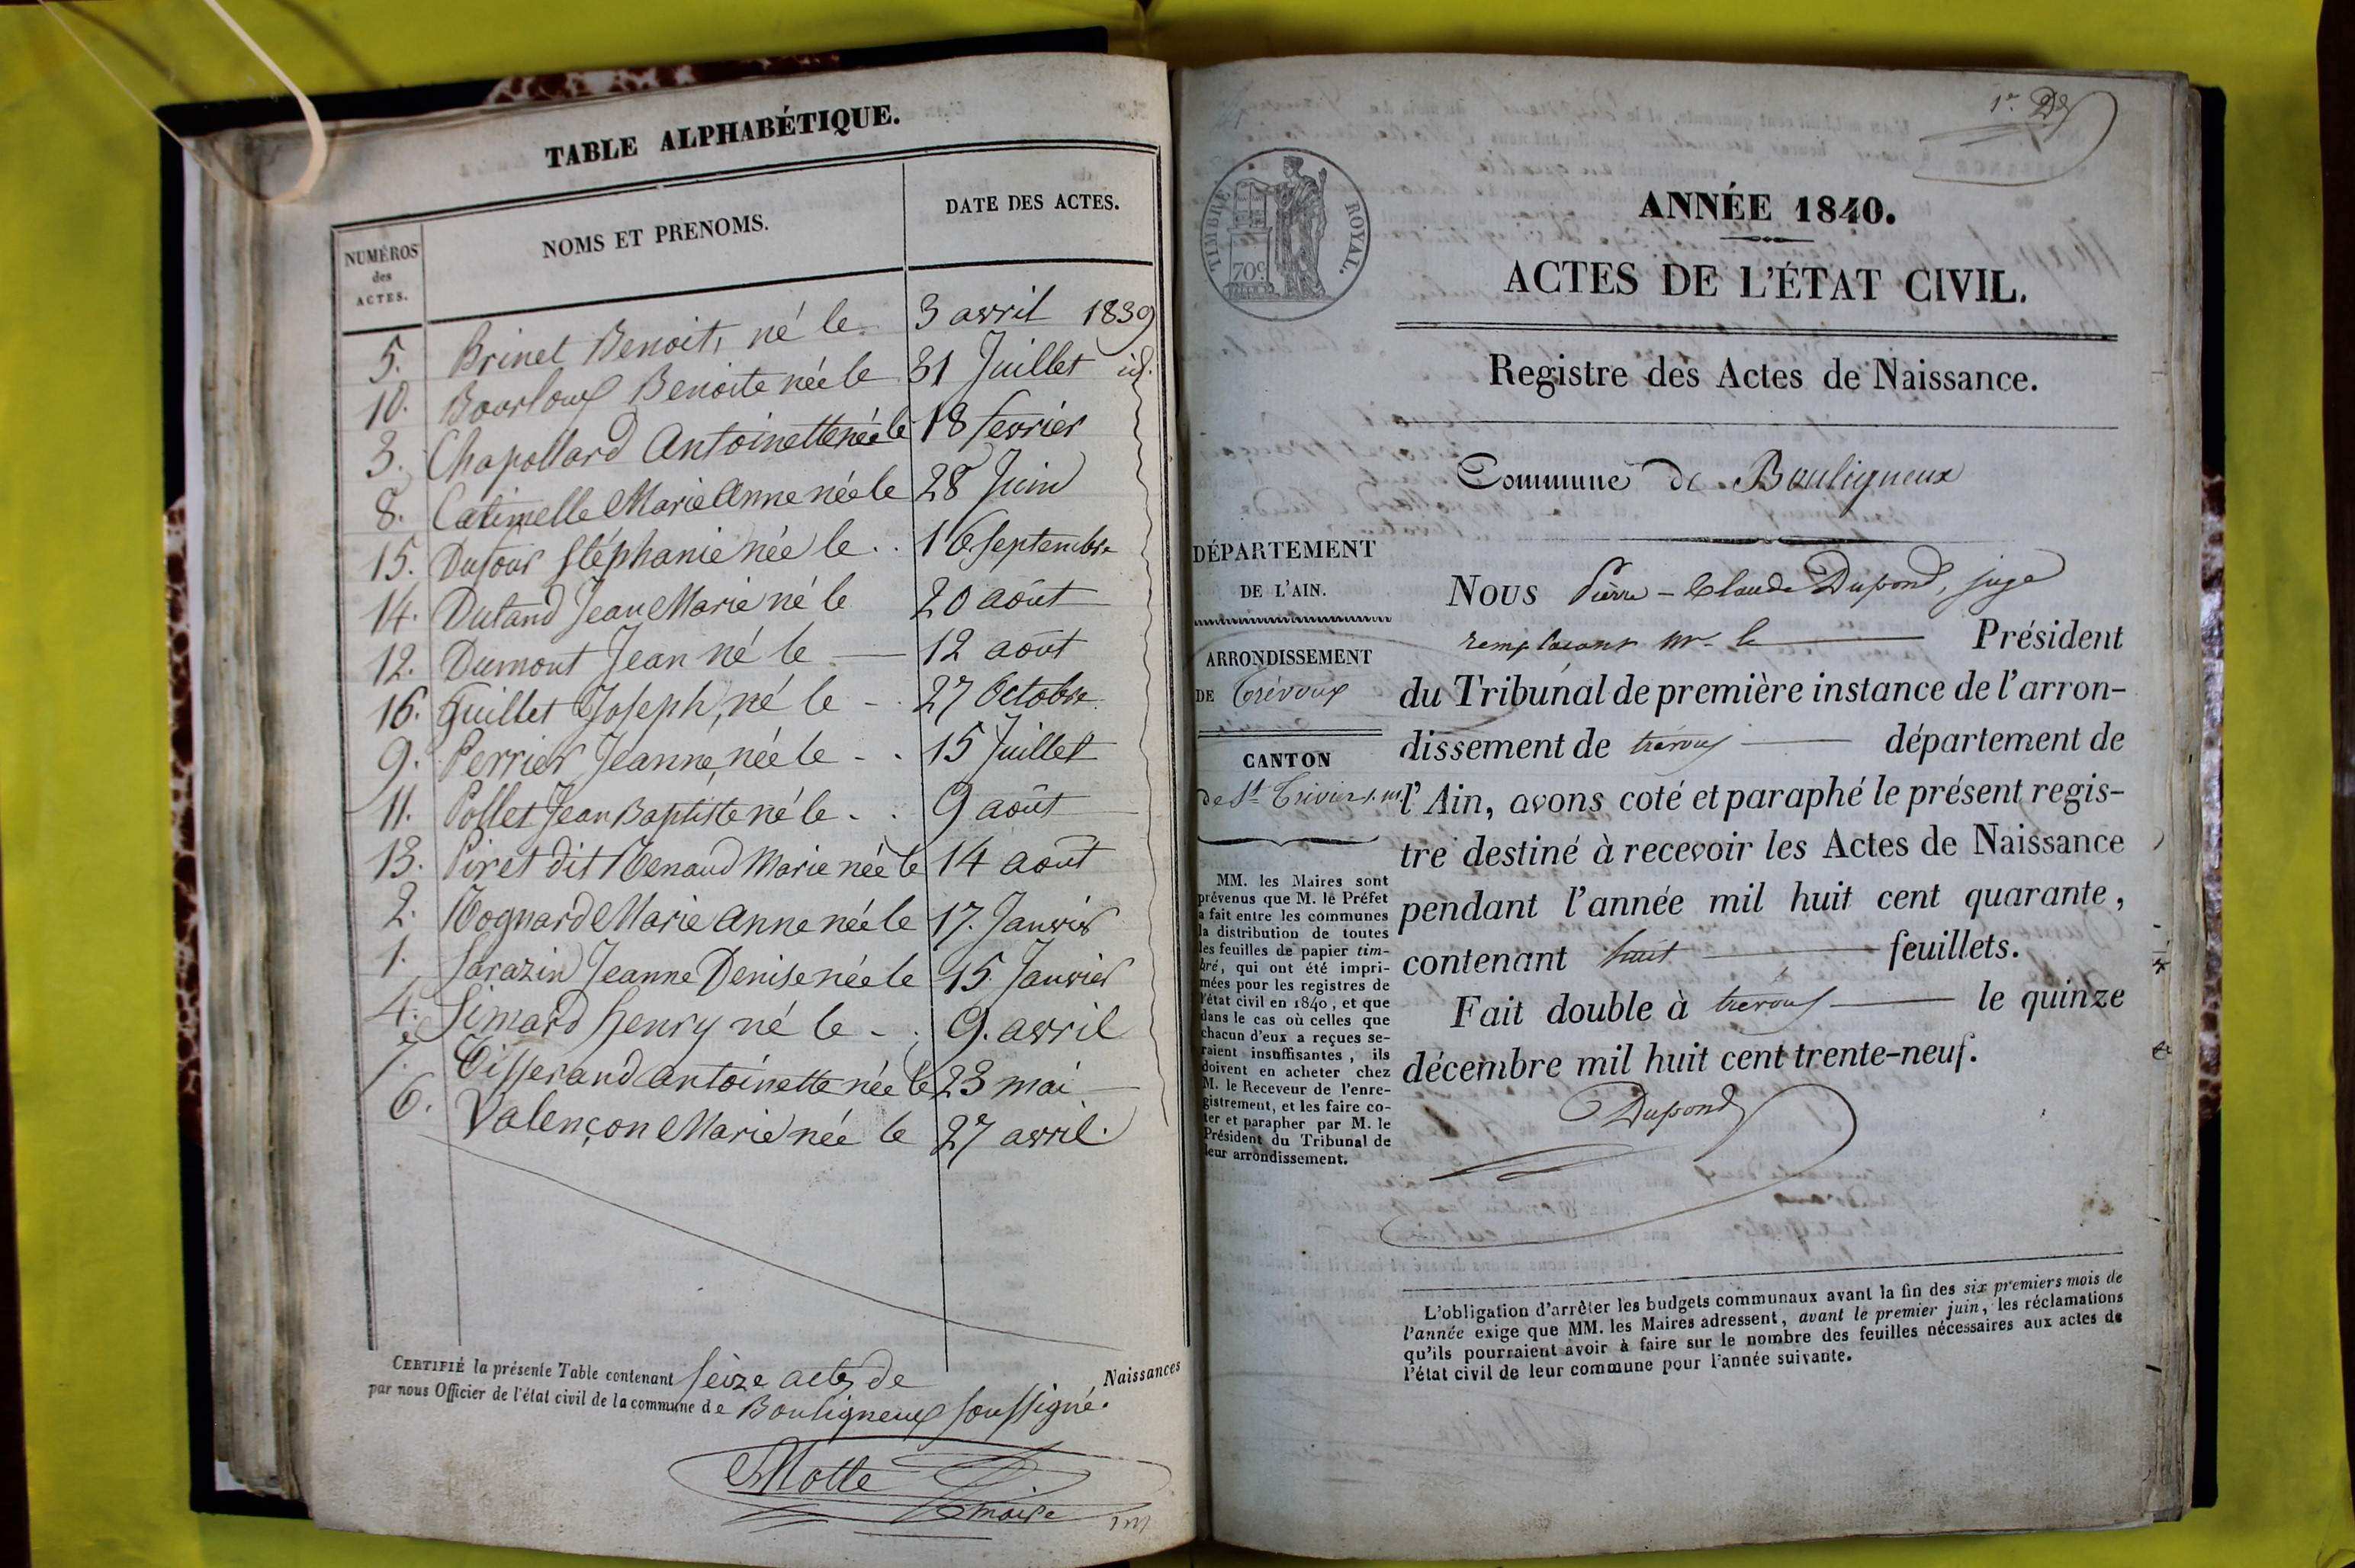 TABLE ALPHABÉTIQUE.
NUMÉROS des ACTES.
NOMS ET PRENOMS.
DATE DES ACTES.
5. Brinet Benoit, né le 3 avril 1839
10. Bourloux Benoite née le 31 Juillet id.
3. Chapollard Antoinette née le 18 fevrier
8. Catimelle Marie Anne née le 28 Juin
15. Dufour Stéphanie née le . . 16 Septembre
14. Dutand Jean Marie né le 20 août
12. Dumont Jean né le — 12 août
16. Guillet Joseph, né le - . 27 Octobre
9. Perrier Jeanne, née le - . 15 Juillet
11. Pollet Jean Baptiste né le . . 9 août
13. Piret dit Renaud Marie née le 14 août
2. Rognard Marie Anne née le 17. Janvier
1. Sarazin Jeanne Denise née le 15. Janvier
4. Simard henry né le - . 9. avril
7. Tisserand antoinette née le 23 mai
6. Valençon Marie née le 27 avril.
CERTIFIÉ la présente Table contenant seize actes de Naissances
par nous Officier de l'état civil de la commune de Bouligneux soussigné.
Motte
maire
1re D
TIMBRE ROYAL.
70c
ANNÉE 1840.
ACTES DE L'ÉTAT CIVIL.
Registre des Actes de Naissance.
Commune de Bouligneux
DÉPARTEMENT
DE L'AIN.
ARRONDISSEMENT
DE Trévoux
CANTON
de St Trivier s. m.
MM. les Maires sont
prévenus que M. le Préfet
a fait entre les communes
la distribution de toutes
les feuilles de papier tim-
bré, qui ont été impri-
mées pour les registres de
l'état civil en 1840, et que
dans le cas où celles que
chacun d'eux a reçues se-
raient insuffisantes, ils
doivent en acheter chez
M. le Receveur de l'enre-
gistrement, et les faire co-
ter et parapher par M. le
Président du Tribunal de
leur arrondissement.
NOUS Pierre - Claude Dupond, juge
remplaçant mr. le — Président
du Tribunal de première instance de l'arron-
dissement de trévoux — département de
l'Ain, avons coté et paraphé le présent regis-
tre destiné à recevoir les Actes de Naissance
pendant l'année mil huit cent quarante,
contenant huit — feuillets.
Fait double à trevoux — le quinze
décembre mil huit cent trente-neuf.
Dupond
L'obligation d'arrêter les budgets communaux avant la fin des six premiers mois de
l'année exige que MM. les Maires adressent, avant le premier juin, les réclamations
qu'ils pourraient avoir à faire sur le nombre des feuilles nécessaires aux actes de
l'état civil de leur commune pour l'année suivante.